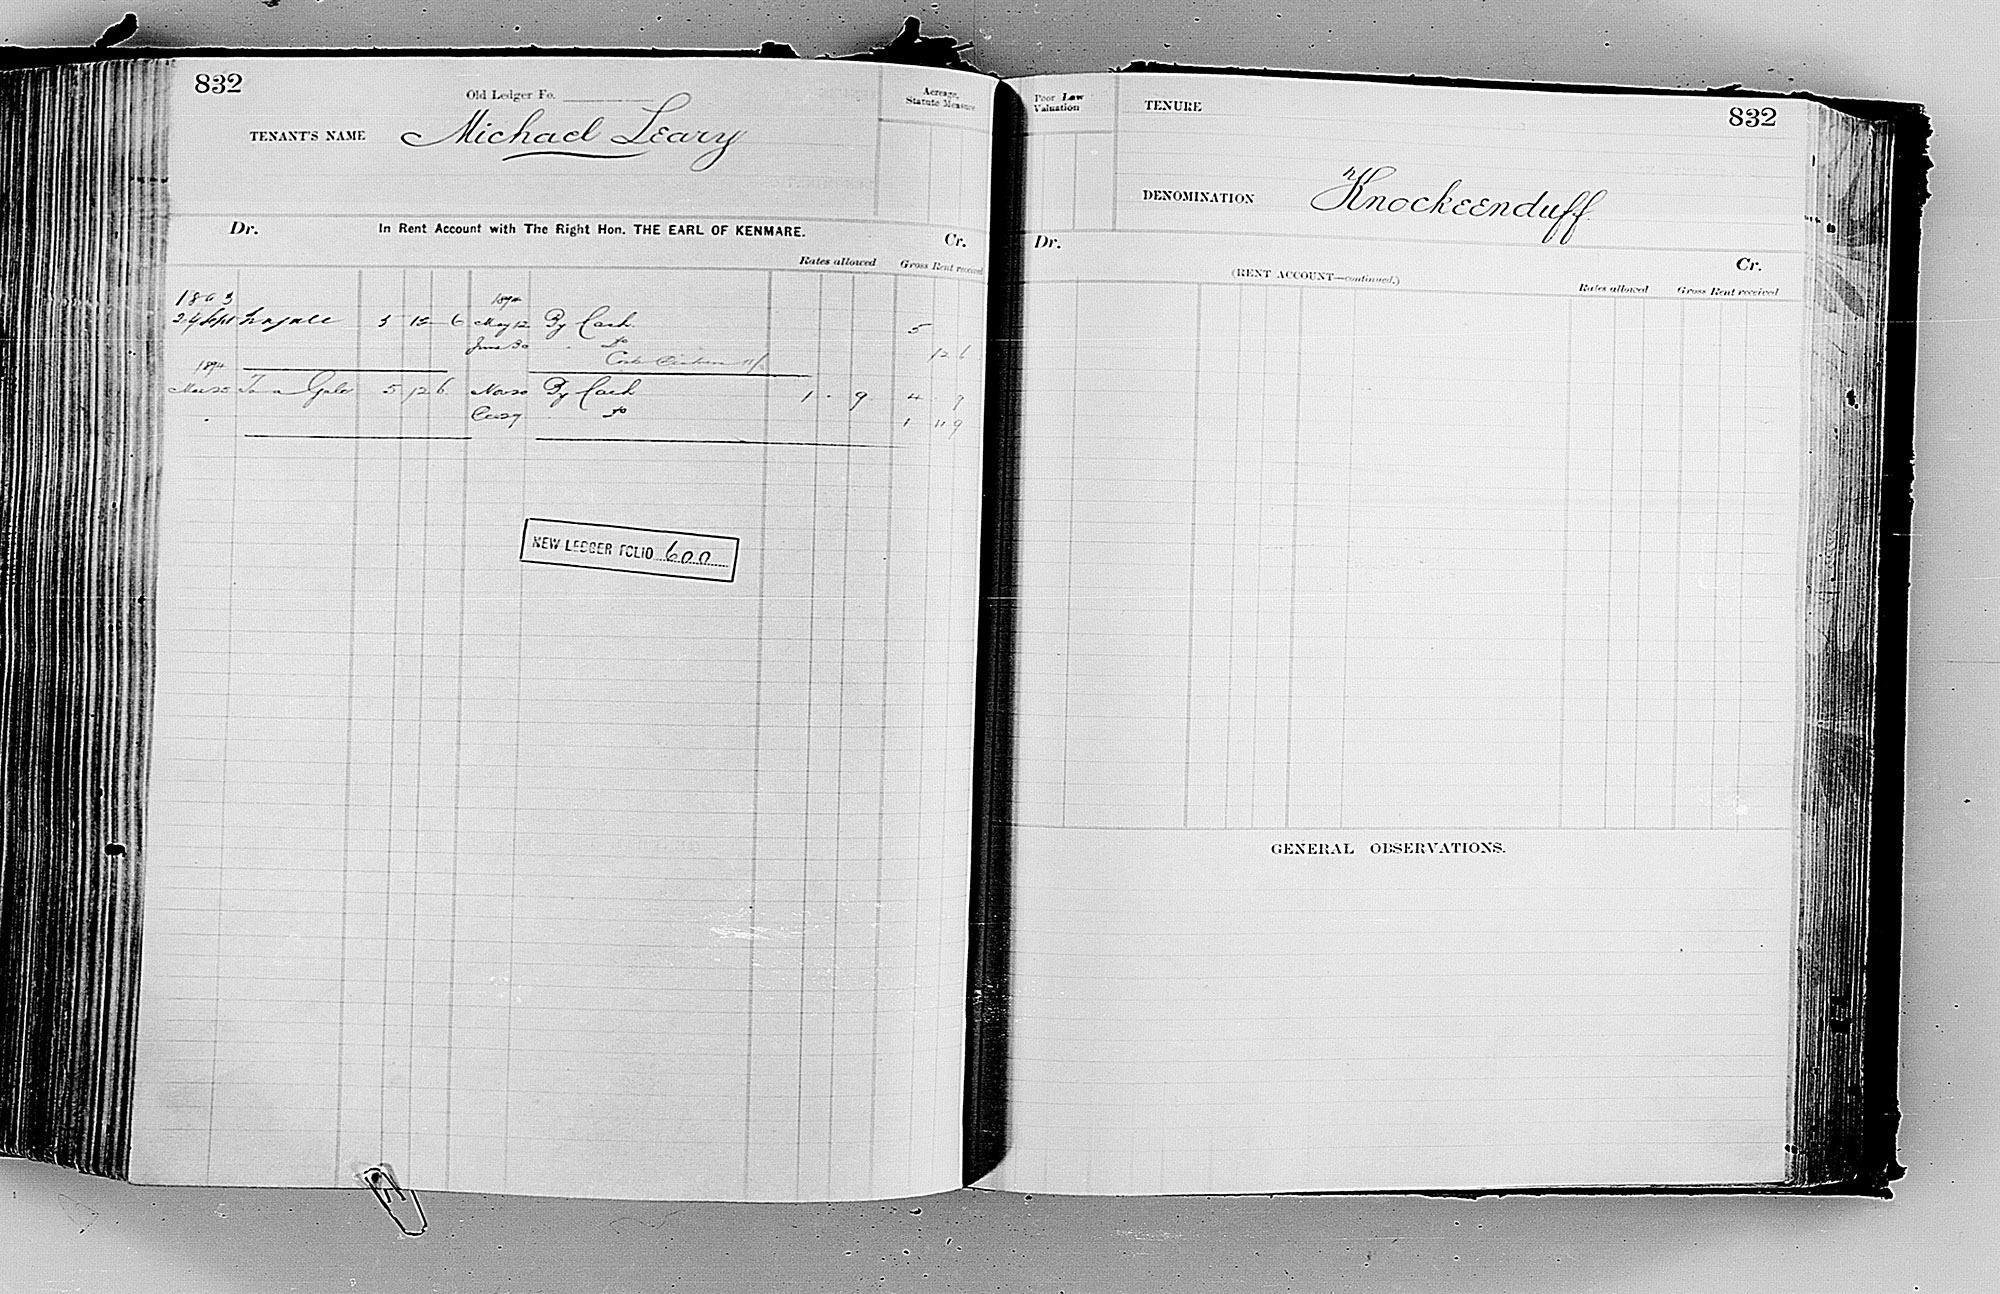 832
Old Ledger Fo.
TENANT'S NAME Michael Leary
Acreage,
Statute Measure
Dr. In Rent Account with The Right Hon. THE EARL OF KENMARE. Cr.
Rates allowed Gross Rent received
1893 1894
29 Sept 5 12 6 May 12 By Cash 5
June 30 " Do 12 6
1894
Mar 25 To a Gale 5 12 6 Nov 20 By Cash 1 . 9 4 . 9
Dec 29 Do 1 11 9
NEW LEDGER FOLIO 600
Poor Law
Valuation
TENURE
832
DENOMINATION Knockeenduff
Dr. Cr.
(RENT ACCOUNT—continued.)
Rates allowed Gross Rent received
GENERAL OBSERVATIONS.